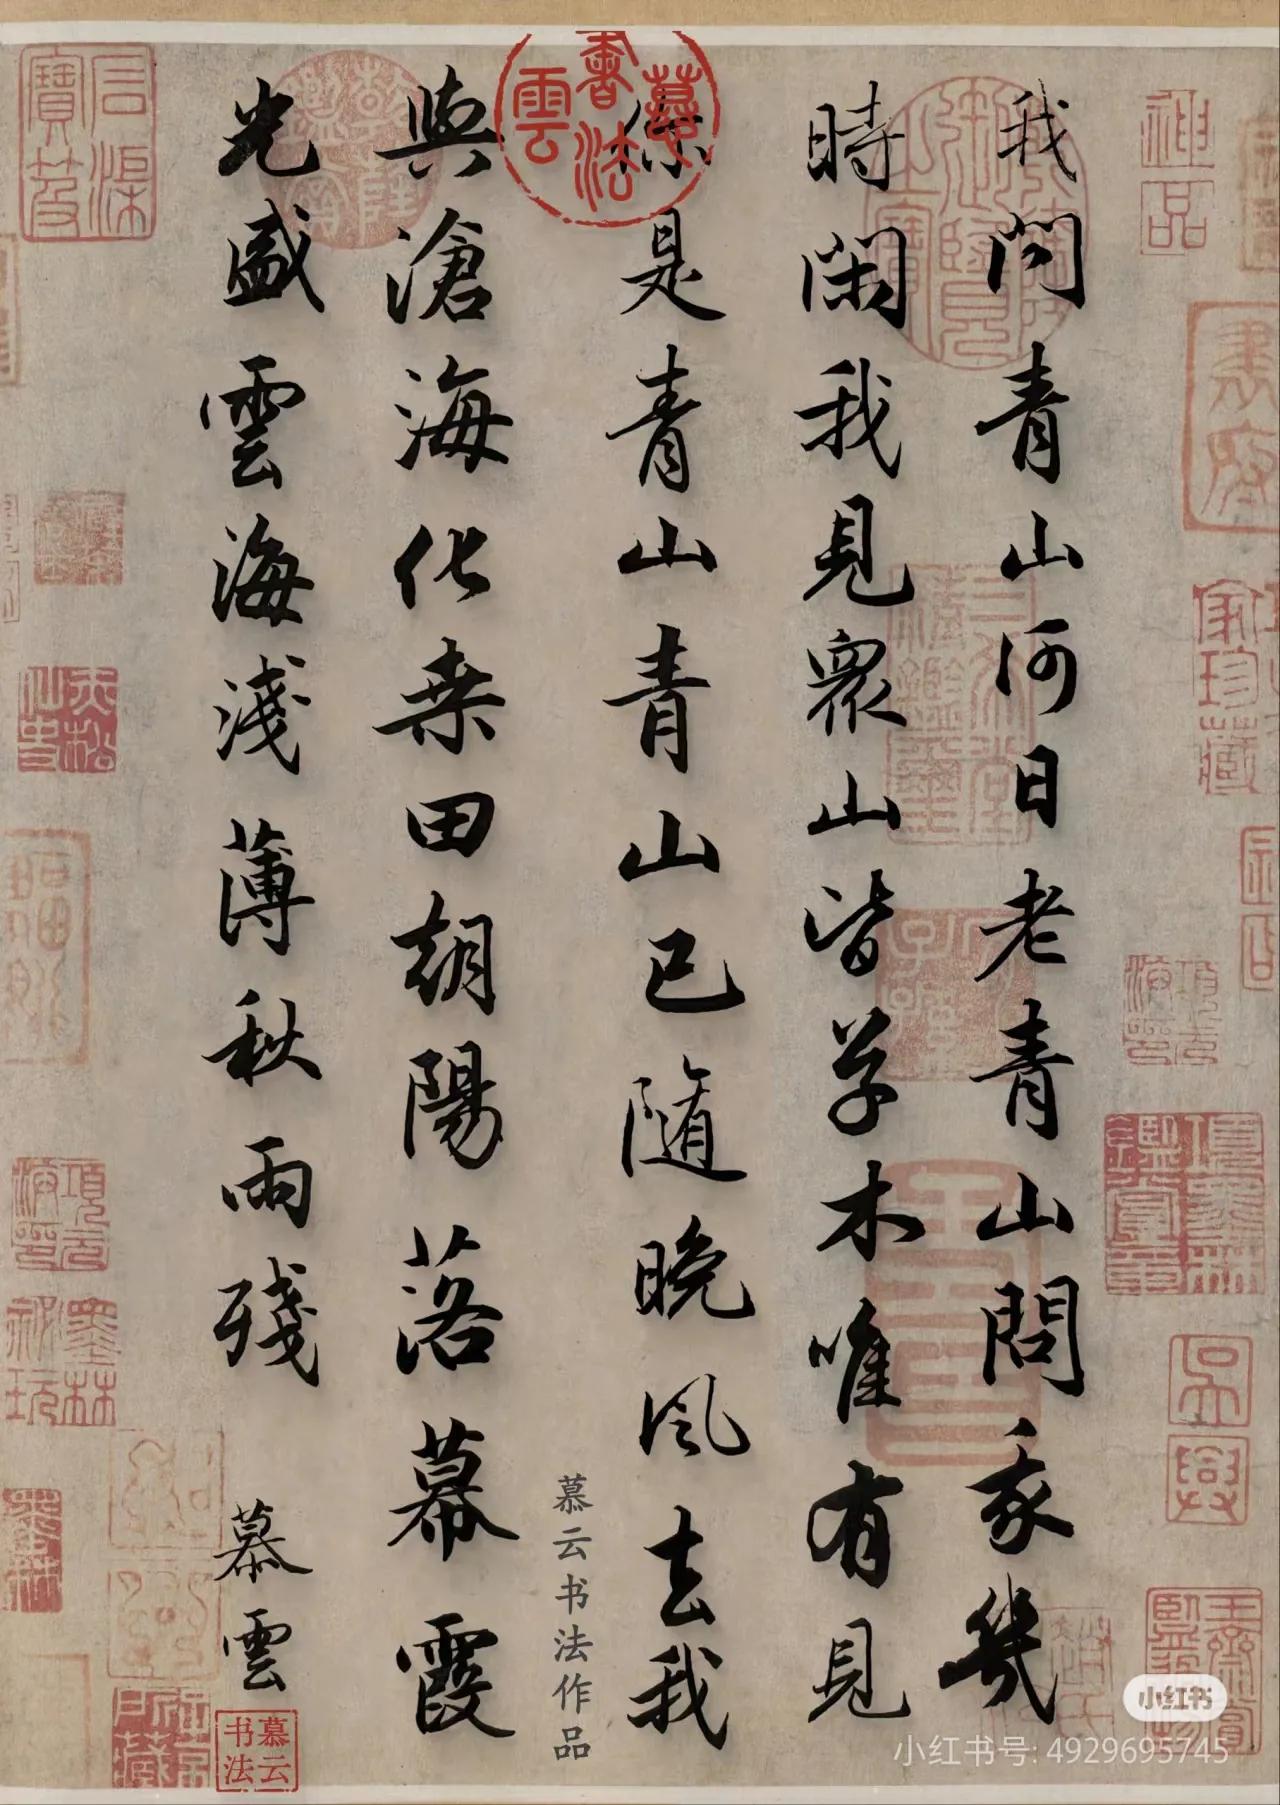 我問青山何日老青山問我幾
時閑我見眾山皆草木唯有見
你是青山青山已隨晚風去我
與滄海化桑田朝陽落幕霞
光盛雲海淺薄秋雨殘
慕雲
慕云书法
慕云书法作品
慕雲書法
神品
家珍藏
項元汴印
小红书
小红书号: 4929695745